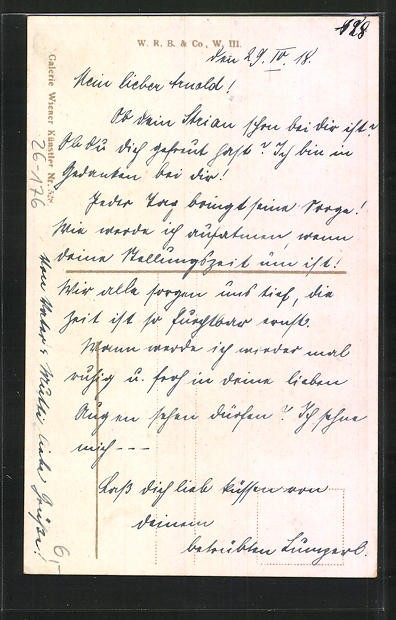 928
W. R. B. & Co., W. III.
den 29. IV. 18.
Mein lieber Arnold!
Ob dein schon bei dir ist?
Ob du dich gefreut hast? Ich bin in
Gedanken bei dir!
Jeder Tag bringt seine Sorge!
Wie werde ich aufatmen, wenn
deine Stellungszeit um ist!
Wir alle sorgen uns tief, die
Zeit ist so furchtbar ernst.
Wann werde ich wieder mal
ruhig u. froh in deine lieben
Augen sehen dürfen? Ich sehne
mich - - -
Laß dich lieb küssen von
deinem
betrübten
Galerie Wiener Künstler Nr.
26-176
Von Vater & Mutter liebe Grüße!
6,-